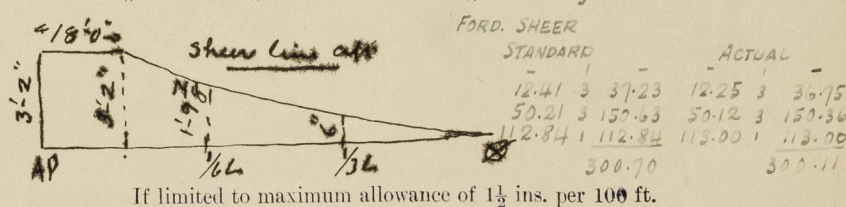 18'-0"
Sheer line aft
3'-2"
3'-2"
1'-9 7/8
6"
AP
1/6 L
1/3 L
FORD. SHEER
STANDARD ACTUAL
12.41 3 37.23 12.25 3 36.75
50.21 3 150.63 50.12 3 150.36
112.84 1 112.84 113.00 1 113.00
300.70 300.11
If limited to maximum allowance of 1½ ins. per 100 ft.